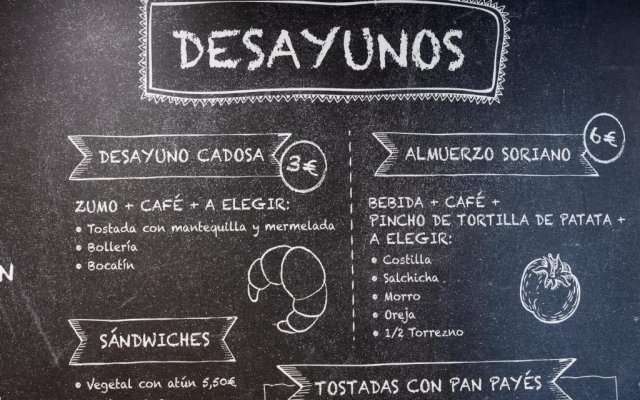 DESAYUNOS
DESAYUNO CADOSA 3€
ZUMO + CAFÉ + A ELEGIR:
• Tostada con mantequilla y mermelada
• Bollería
• Bocatín
SÁNDWICHES
• Vegetal con atún 5,50€
ALMUERZO SORIANO 6€
BEBIDA + CAFÉ +
PINCHO DE TORTILLA DE PATATA +
A ELEGIR:
• Costilla
• Salchicha
• Morro
• Oreja
• 1/2 Torrezno
TOSTADAS CON PAN PAYÉS